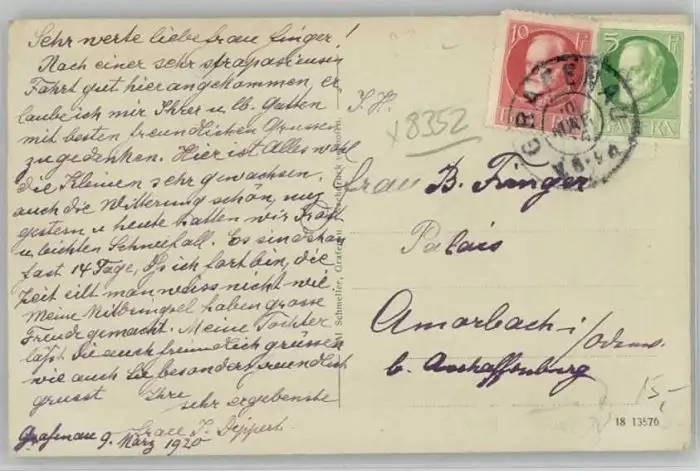 Sehr werte liebe Frau Finger!
Nach einer sehr strapaziösen
Fahrt gut hier angekommen, er
laube ich mir Ihrer u. lb. Gatten
mit besten freundlichen Grüssen
zu gedenken. Hier ist Alles wohl
die Kleinen sehr gewachsen,
auch die Witterung schön, nur
gestern u. heute hatten wir Frost
u. leichten Schneefall. Es sind schon
fast 14 Tage, dss ich fort bin, die
Zeit eilt man weiss nicht wie.
Meine Mitbringsel haben grosse
Freude gemacht. Meine Tochter
lässt Sie auch freundlich grüssen
wie auch Sie besonders freundlich
grüsst Ihre
sehr ergebenste
Frau J. Dippert
Grafenau 9. März 1920
Schmeller, Grafenau
10
5
BAYERN
GRAFENAU
S.H.
x8352
Frau B. Finger
Palais
Amorbach i/Odenw.
b. Aschaffenburg
15,-
18 13576